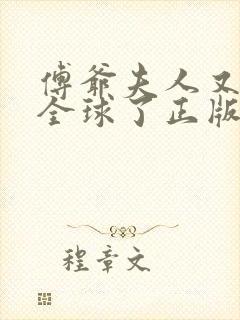 傅爺夫人又
全球了正版
程章文